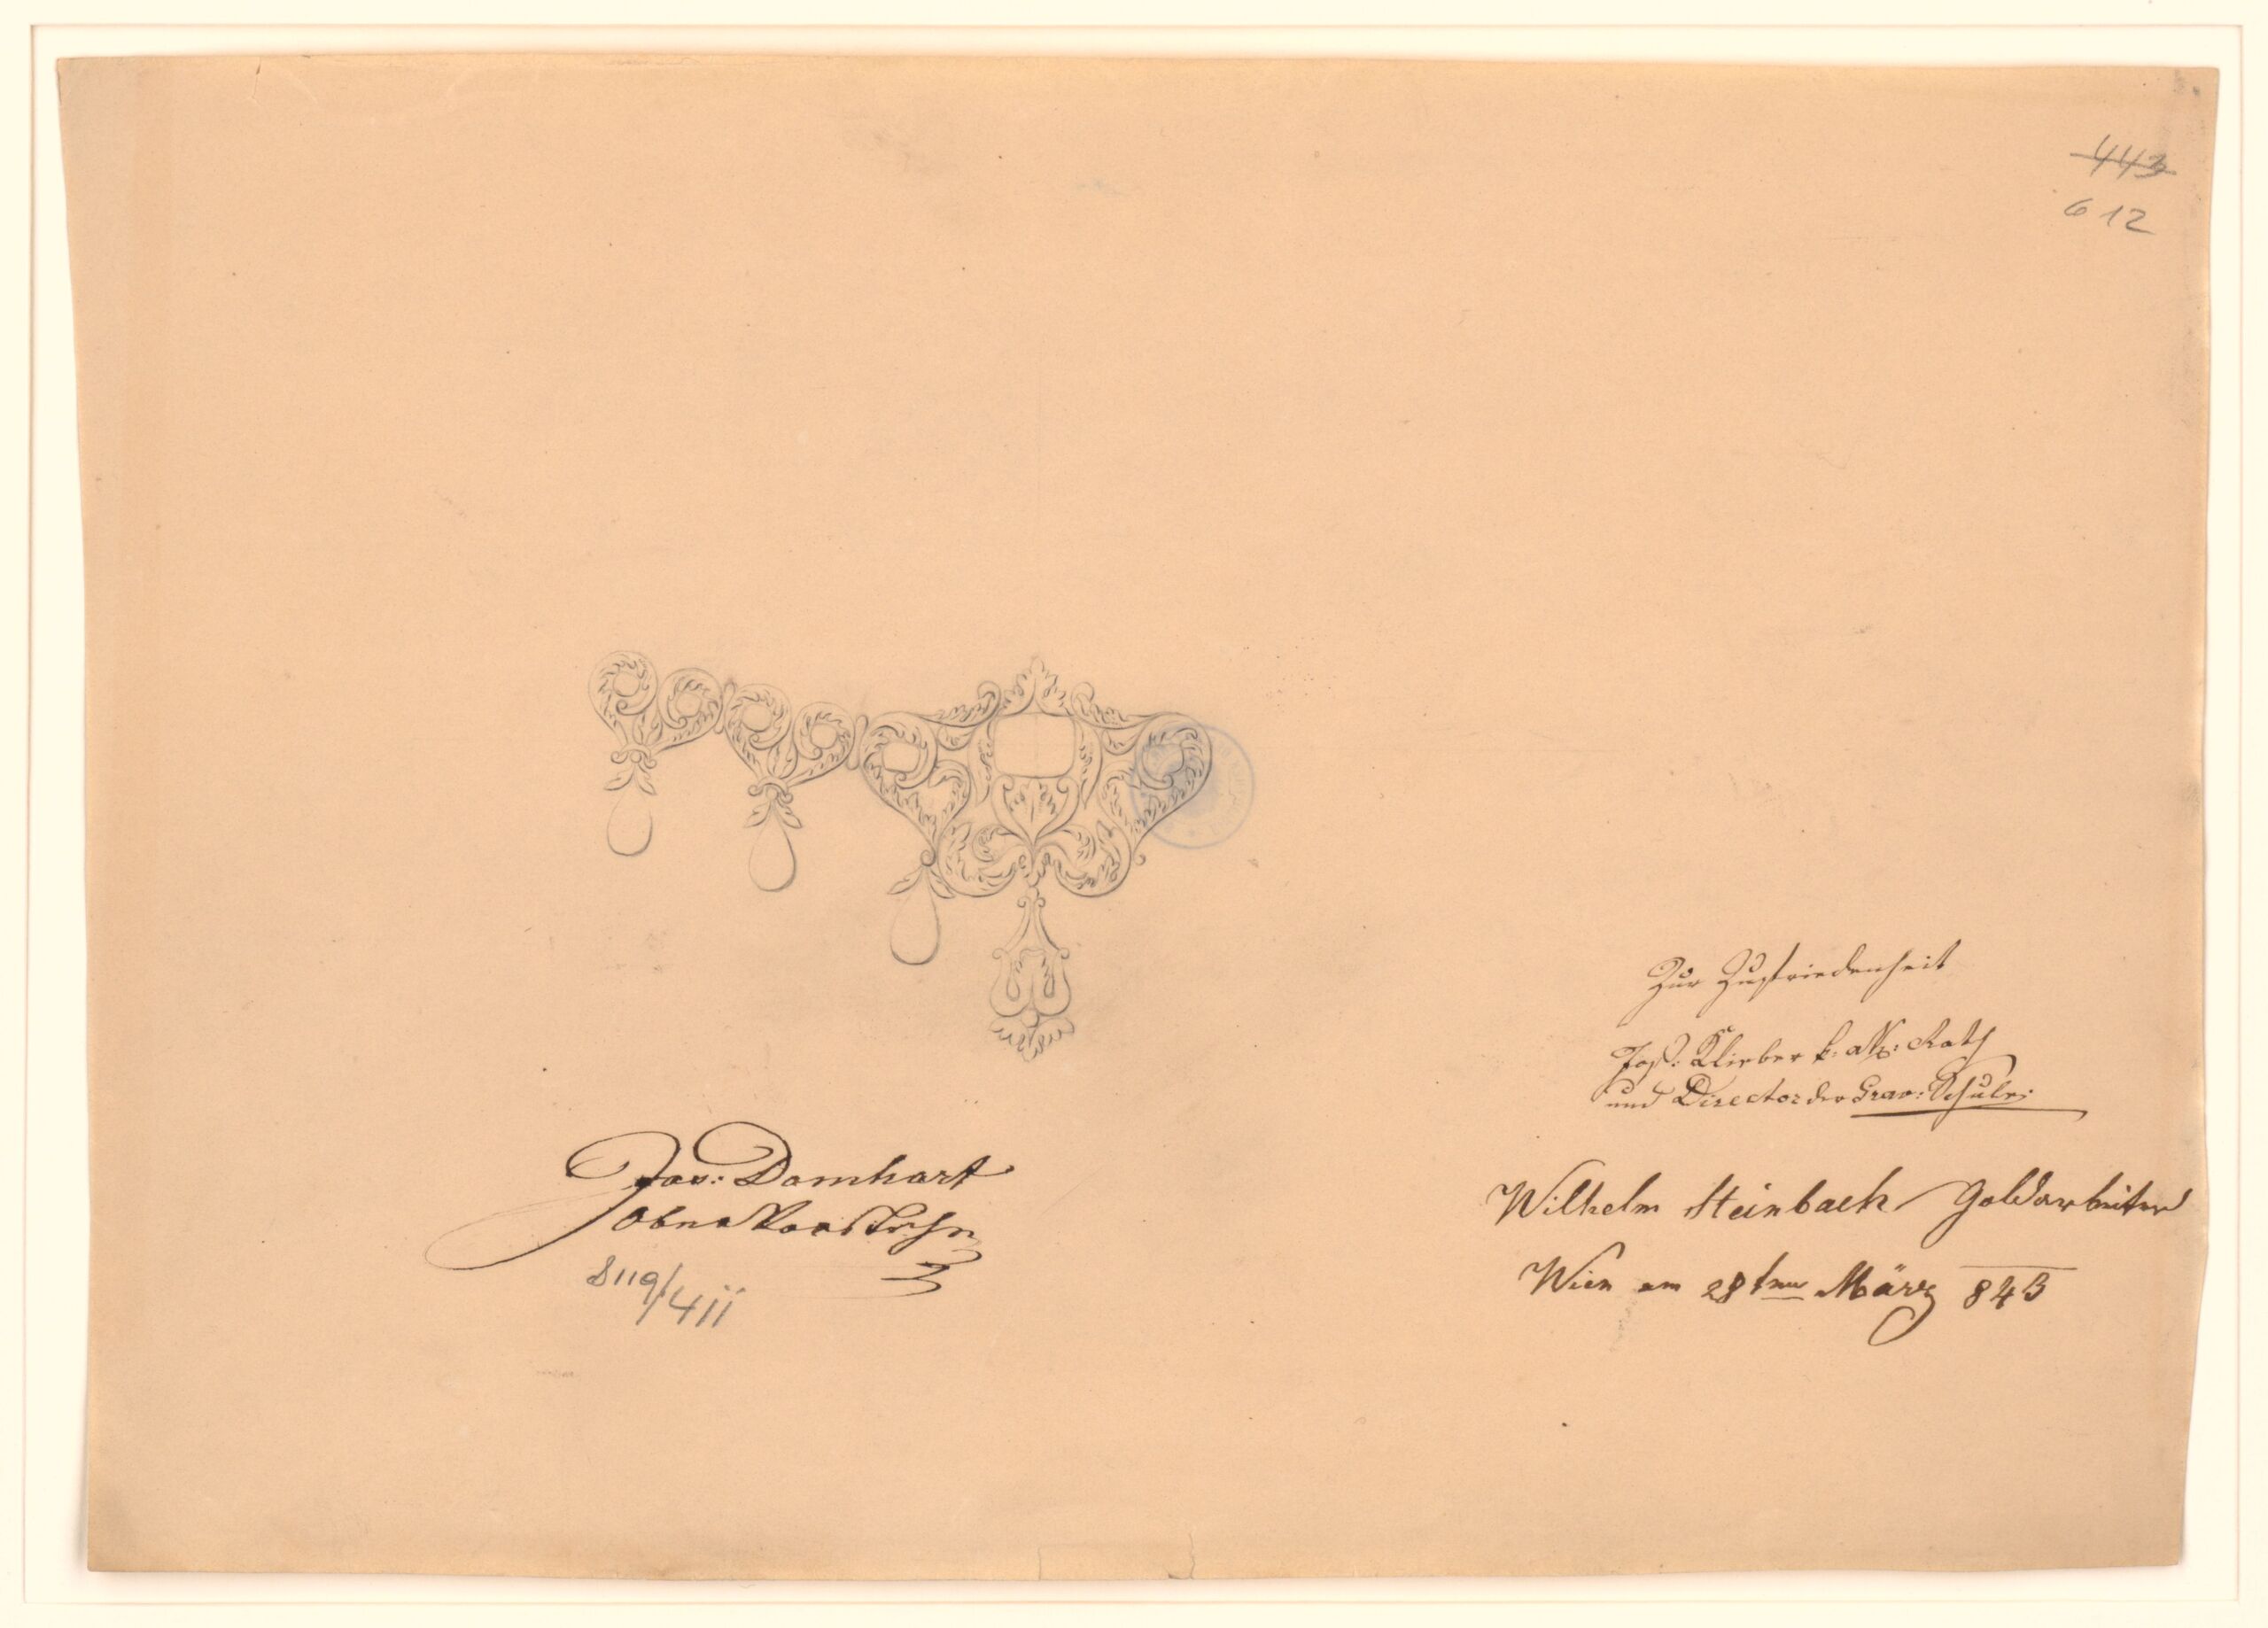 443
612
Zur Zufriedenheit
Jos: Klieber k: Ak: Rath
und Director der Grav: Schule:
Jos: Damhart
Obervorsteher
8119/411
Wilhelm Steinbach Goldarbeiter
Wien am 28ten März 843